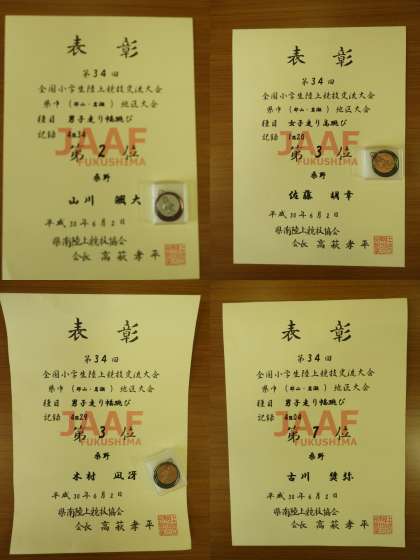 表彰
第34回
全国小学生陸上競技交流大会
県中(郡山・岩瀬)地区大会
種目 男子走り幅跳び
記録 4m34
JAAF
FUKUSHIMA
第2位
桑野
山川 颯大
平成30年6月2日
県南陸上競技協会
会長 高萩孝平
表彰
第34回
全国小学生陸上競技交流大会
県中(郡山・岩瀬)地区大会
種目 女子走り高跳び
記録 1m20
JAAF
FUKUSHIMA
第3位
桑野
佐藤 胡幸
平成30年6月2日
県南陸上競技協会
会長 高萩孝平
表彰
第34回
全国小学生陸上競技交流大会
県中(郡山・岩瀬)地区大会
種目 男子走り幅跳び
記録 4m29
JAAF
FUKUSHIMA
第3位
桑野
木村 凪冴
平成30年6月2日
県南陸上競技協会
会長 高萩孝平
表彰
第34回
全国小学生陸上競技交流大会
県中(郡山・岩瀬)地区大会
種目 男子走り幅跳び
記録 4m04
JAAF
FUKUSHIMA
第7位
桑野
古川
平成30年6月2日
県南陸上競技協会
会長 高萩孝平